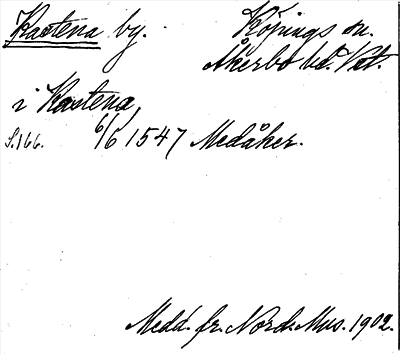 Kastena by. Köpings sn.
Åkerbo hd. Vstm.
i Kastena,
S. 166. 6/6 1547 Medåker.
Medd. fr. Nord. Mus. 1902.